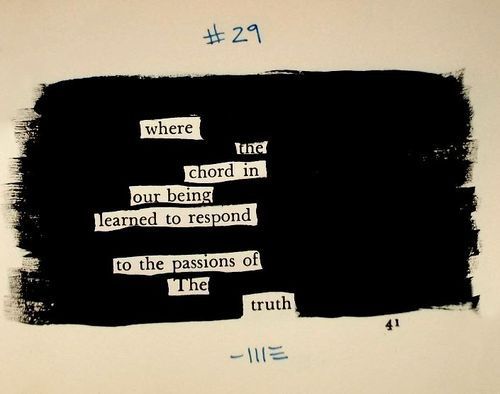 #29
where
the
chord in
our being
learned to respond
to the passions of
The
truth
41